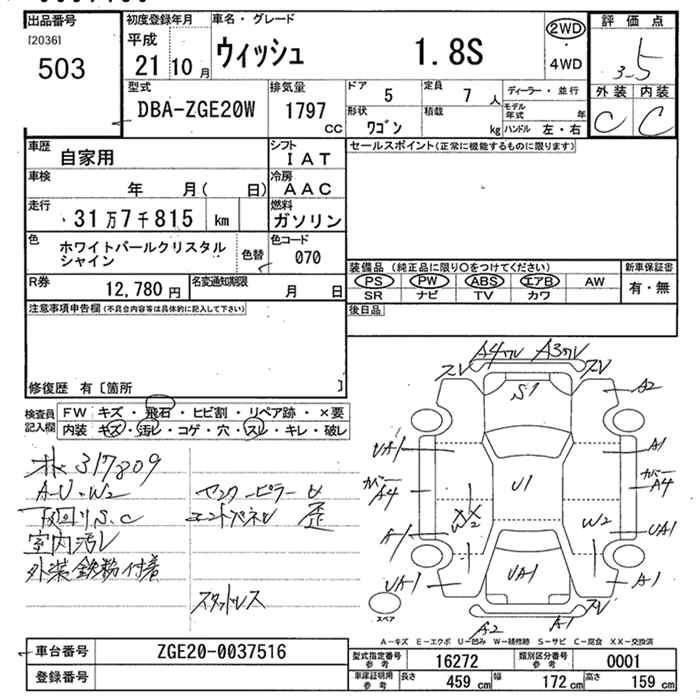 出品番号
[2036]
503
初度登録年月
平成
21 10 月
車名・グレード
ウィッシュ 1.8S
2WD
・
4WD
評価点
3-5
外装 内装
C C
型式
DBA-ZGE20W
排気量
1797 CC
ドア 5
定員 7 人
ディーラー・並行
形状 ワゴン
積載 kg
モデル年式 年
ハンドル 左・右
車歴 自家用
シフト IAT
車検 年 月( 日)
冷房 AAC
走行 31万7千815 km
燃料 ガソリン
色 ホワイトパールクリスタル
シャイン
色替
色コード 070
R券 12,780 円
名変通知期限 月 日
セールスポイント(正常に機能するものに限ります)
装備品 (純正品に限り○をつけてください)
新車保証書
PS PW ABS エアB AW
有・無
SR ナビ TV カワ
後日品
注意事項申告欄(不具合内容等は具体的に記入して下さい)
修復歴 有〔箇所 〕
検査員
記入欄
FW キズ・飛石・ヒビ割・リペア跡・×要
内装 キズ・汚レ・コゲ・穴・スレ・キレ・破レ
317809
A-U・W2
下回り S.C
室内汚レ
外装鉄粉付着
センターピラー
エンドパネル 歪
スタッドレス
A4ワレ A3ワレ
スリ スリ
S1
A2
UA1
A1
カバーA4
カバーA4
U1
XX
W2
W2
A1
UA1
UA1
UA1
A1
スリ
A2
A1
スペア
A-キズ E-エクボ U-凹み W-補修跡 S-サビ C-腐食 XX-交換済
車台番号 ZGE20-0037516
登録番号
型式指定番号
参考
16272
類別区分番号
参考
0001
車庫証明用
参考
長さ 459 cm
幅 172 cm
高さ 159 cm